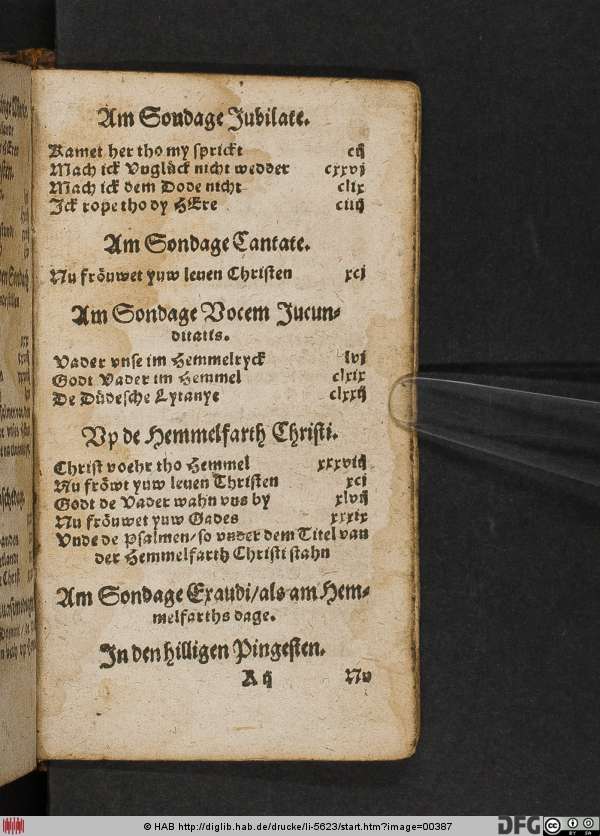 Am Sondage Jubilate.
Kamet her tho my sprickt cij
Mach ick Vnglück nicht wedder cxxvj
Mach ick dem Dode nicht clix
Ick rope tho dy HEre ciiij
Am Sondage Cantate.
Nu fröuwet yuw leuen Christen xcj
Am Sondage Vocem Jucun-
ditatis.
Vader vnse im Hemmelryck lvj
Godt Vader im Hemmel clxix
De Düdesche Lytanye clxxij
Vp de Hemmelfarth Christi.
Christ voehr tho Hemmel xxxviij
Nu fröwt yuw leuen Christen xcj
Godt de Vader wahn vns by xlvij
Nu fröuwet yuw Gades xxxix
Vnde de Psalmen/so vnder dem Titel van
der Hemmelfarth Christi stahn
Am Sondage Exaudi/als am Hem-
melfarths dage.
In den hilligen Pingesten.
A ij Nu
© HAB http://diglib.hab.de/drucke/li-5623/start.htm?image=00387
DFG